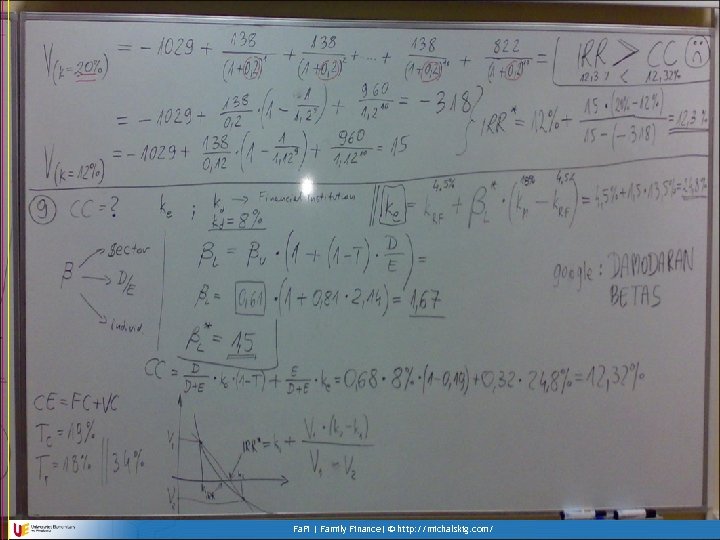 V(k=20%) = -1029 + 138/(1+0,2)^1 + 138/(1+0,2)^2 + ... + 138/(1+0,2) + 822/(1+0,2) = IRR > CC
12,3% < 12,32%
= -1029 + 138/0,2 · (1 - 1/1,2^9) + 960/1,2^10 = -318
IRR* = 12% + 15·(20%-12%)/(15-(-318)) = 12,3%
V(k=12%) = -1029 + 138/0,12 · (1 - 1/1,12^9) + 960/1,12^10 = 15
9 CC=? ke ; kd → Financial institution
kd = 8%
ke = kRF + βL* · (km - kRF) = 4,5% + 1,5 · 13,5% = 24,8%
4,5% 18% 4,5%
β → Sector
→ D/E
→ individ
βL = βU · (1 + (1-T) · D/E) =
βL = 0,61 · (1 + 0,81 · 2,14) = 1,67
βL* = 1,5
google: DAMODARAN
BETAS
CC = D/D+E · kd · (1-T) + E/D+E · ke = 0,68 · 8% · (1-0,19) + 0,32 · 24,8% = 12,32%
CE = FC + VC
Tc = 19%
Tr = 18% 34%
V1
V2
IRR
IRR* = k1 + V1·(k2-k1)/V1-V2
FaFi | Family Finance| © http://michalskig.com/